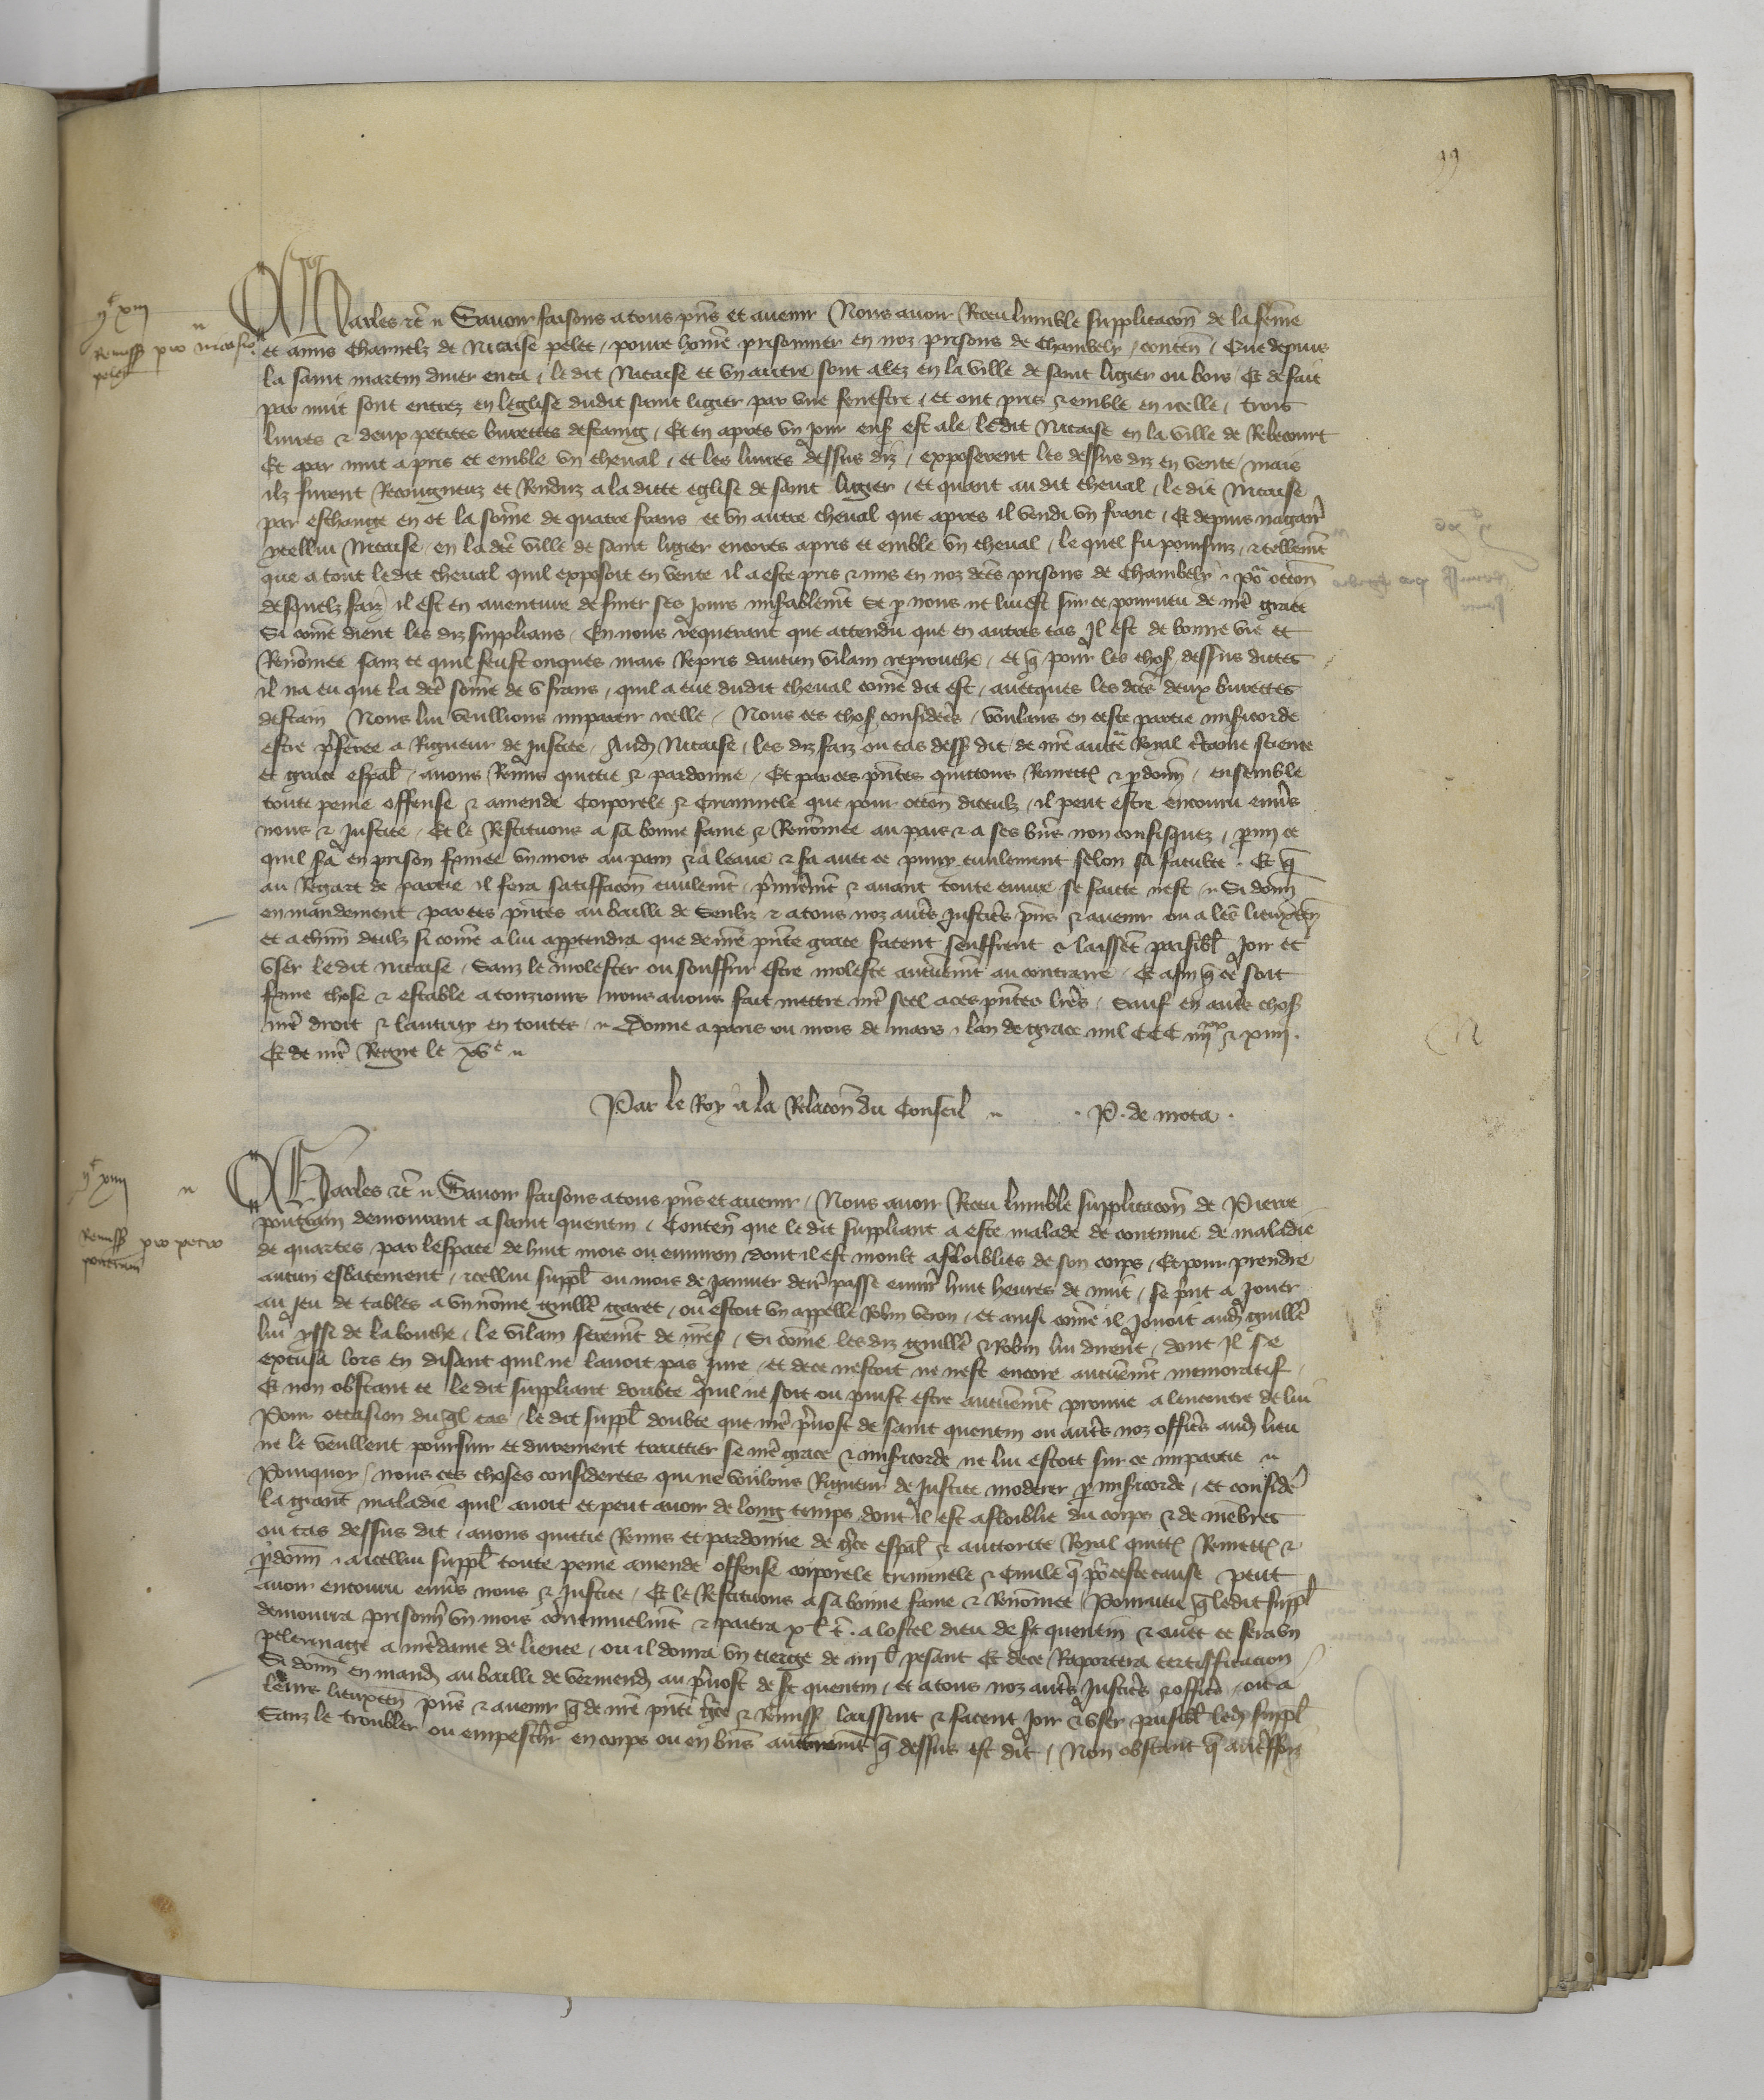 99
yc xiii
Remiss pro nicasio
pelet
Charles etc. Savoir faisons a tous pns et avenir Nous avoir Receu lumble supplicacon de la feme
et amis charnelz de Nicaise pelet, povre home prisonnier en noz prisons de Chambely, conten Que depuis
la saint martin diver enca, le dit Nicaise et un autre sont alez en la ville de saint ligier ou bois Et de fait
par nuit sont entrez en leglise dudit saint ligier par une fenestre, et ont pris & emble en icelle, trois
livres & deux petites burettes destaing, Et en apres un jour ens est ale ledit Nicaise en la ville de Rebecourt
Et par nuit a pris et emble un cheval, et les livres dessus diz, exposerent les dessus diz en vente, mais
ilz furent Recongneuz et Renduz a la ditte eglise de saint ligier, et quant au dit cheval, le dit Nicaise
par eschange en ot la some de quatre frans et un autre cheval que apres il vendi un franc, Et depuis nagair
ycellui Nicaise en la dce ville de saint ligier encores a pris et emble un cheval, le quel fu poursuiz, & tellemt
que a tout ledit cheval quil exposoit en vente il a este pris & mis en noz dces prisons de Chambely, por occon
desquelz faiz il est en aventure de finer ses jours misablemt Se p nous ne lui est sur ce pourveu de nre grace
Si come dient les diz supplians, En nous requerant que attendu que en autres cas Il est de bonne vie et
Renomee sanz ce quil feust onques mais Repris daucun vilain reprouche, et q pour les chos dessus dictes
il na eu que la dce some de v frans, quil a eue dudit cheval come dit est, avecques les dces deux burettes
destain Nous lui veullions impartir icelle, Nous ces chos considers, voulans en ceste partie misicorde
estre pferee a Rigueur de Justice, Aud Nicaise, les diz faiz ou cas dess dit de nre aucte Royal ctaine science
et grace espal, avons Remis quittie & pardonne, Et par ces pntes quittons Remett & pdonn, ensemble
toute peine offense & amende Corporele & Criminele que pour occon diceulz, il peut estre encouru envs
nous & Justice, Et le Restituons a sa bonne fame & Renomee au pais & a ses bns non confisquez, pmi ce
quil sa en prison fermee un mois au pain & a leaue & sa avec ce puny civilement selon sa faculte. Et q
au Regart de partie il fera satisfacon civilemt, pmieremt & avant toute euvre se faicte nest Si donn
en mandement par ces pntes au bailli de Senliz & a tous noz auts Justics pns & avenir ou a les lieuxten
et a chun deulz si come a lui apptendra que de nre pnte grace facent seuffrent & laissent paisibl Joir et
user le dit nicaise, Sanz le molester ou souffrir estre moleste aucunemt au contraire, Et afin q ce soit
ferme chose & estable a touzjours nous avons fait mettre nre seel a ces pntes lres, Sauf en auts chos
nre droit & lautruy en toutes, Donne a paris ou mois de mars, lan de grace mil CCC iiiixx & xiiii.
Et de nre Regne le xve
Par le Roy a la Relacon du Conseil . P. de mota.
yc xiiii
Remiss pro petro
poutrain
Charles etc. Savoir faisons a tous pns et avenir, Nous avoir Receu lumble supplicacon de Pierre
poutrain demourant a saint quentin, Conten que le dit suppliant a este malade de continue de maladie
de quartes par lespace de huit mois ou environ dont il est moult afloibliés de son corps, Et pour prendre
aucun esbatement, icellui suppl ou mois de Janvier derr passe envir huit heures de nuit, se prit a jouer
au jeu de tables a un nome guille garet, ou estoit un appelle Robin veron, et ainsi come il jouoit aud guille
lui yssi de la bouche, le vilain seremt de nres, Si come les diz guille & Robin lui dirent, dont Il se
excusa lors en disant quil ne lavoit pas jure, et de ce nestoit ne nest encore aucunemt memoratif,
Et non obstant ce le dit suppliant doubte quil ne soit ou puist estre aucunemt prouve a lencontre de lui
Pour occasion du ql cas, le dit suppl doubte que nre pvost de saint quentin ou auts noz offics aud lieu
ne le veullent poursuir et durement traittier se nre grace & misicorde ne lui estoit sur ce impartie
Pourquoy, nous ces choses considerees qui ne voulons Rigueur de Justice moderer p misicorde, et conside
la grant maladie quil avoit et peut avoir de long temps dont il est afloiblie du corps & de membres
ou cas dessus dit, avons quittie Remis et pardonne de gce espal & auctorite Royal quitt Remett &
pdonn, a icellui suppl toute peine amende offense corporele criminele & Civile q por ceste cause peut
avoir encouru envs nous & Justice, Et le Restituons a sa bonne fame & Renomee, Pourveu q ledit suppl
demourra prisonn un mois continuelmt & paiera x l t. a lostel dieu de st quentin & avec ce fera un
pelerinage a nredame de lience, ou il donra un cierge de iiii l pesant Et de ce Raportera certifficacion
Si donn en mand au bailli de vermend au pvost de st quentin, et a tous noz auts Justics & offics, ou a
leurs lieuxten pns & avenir q de nre pnte gce & Remiss laissent & facent Joir & user paisibl led suppl
Sanz le troubler ou empescher en corps ou en bns autremt q dessus est dit, Non obstant q autressoiz